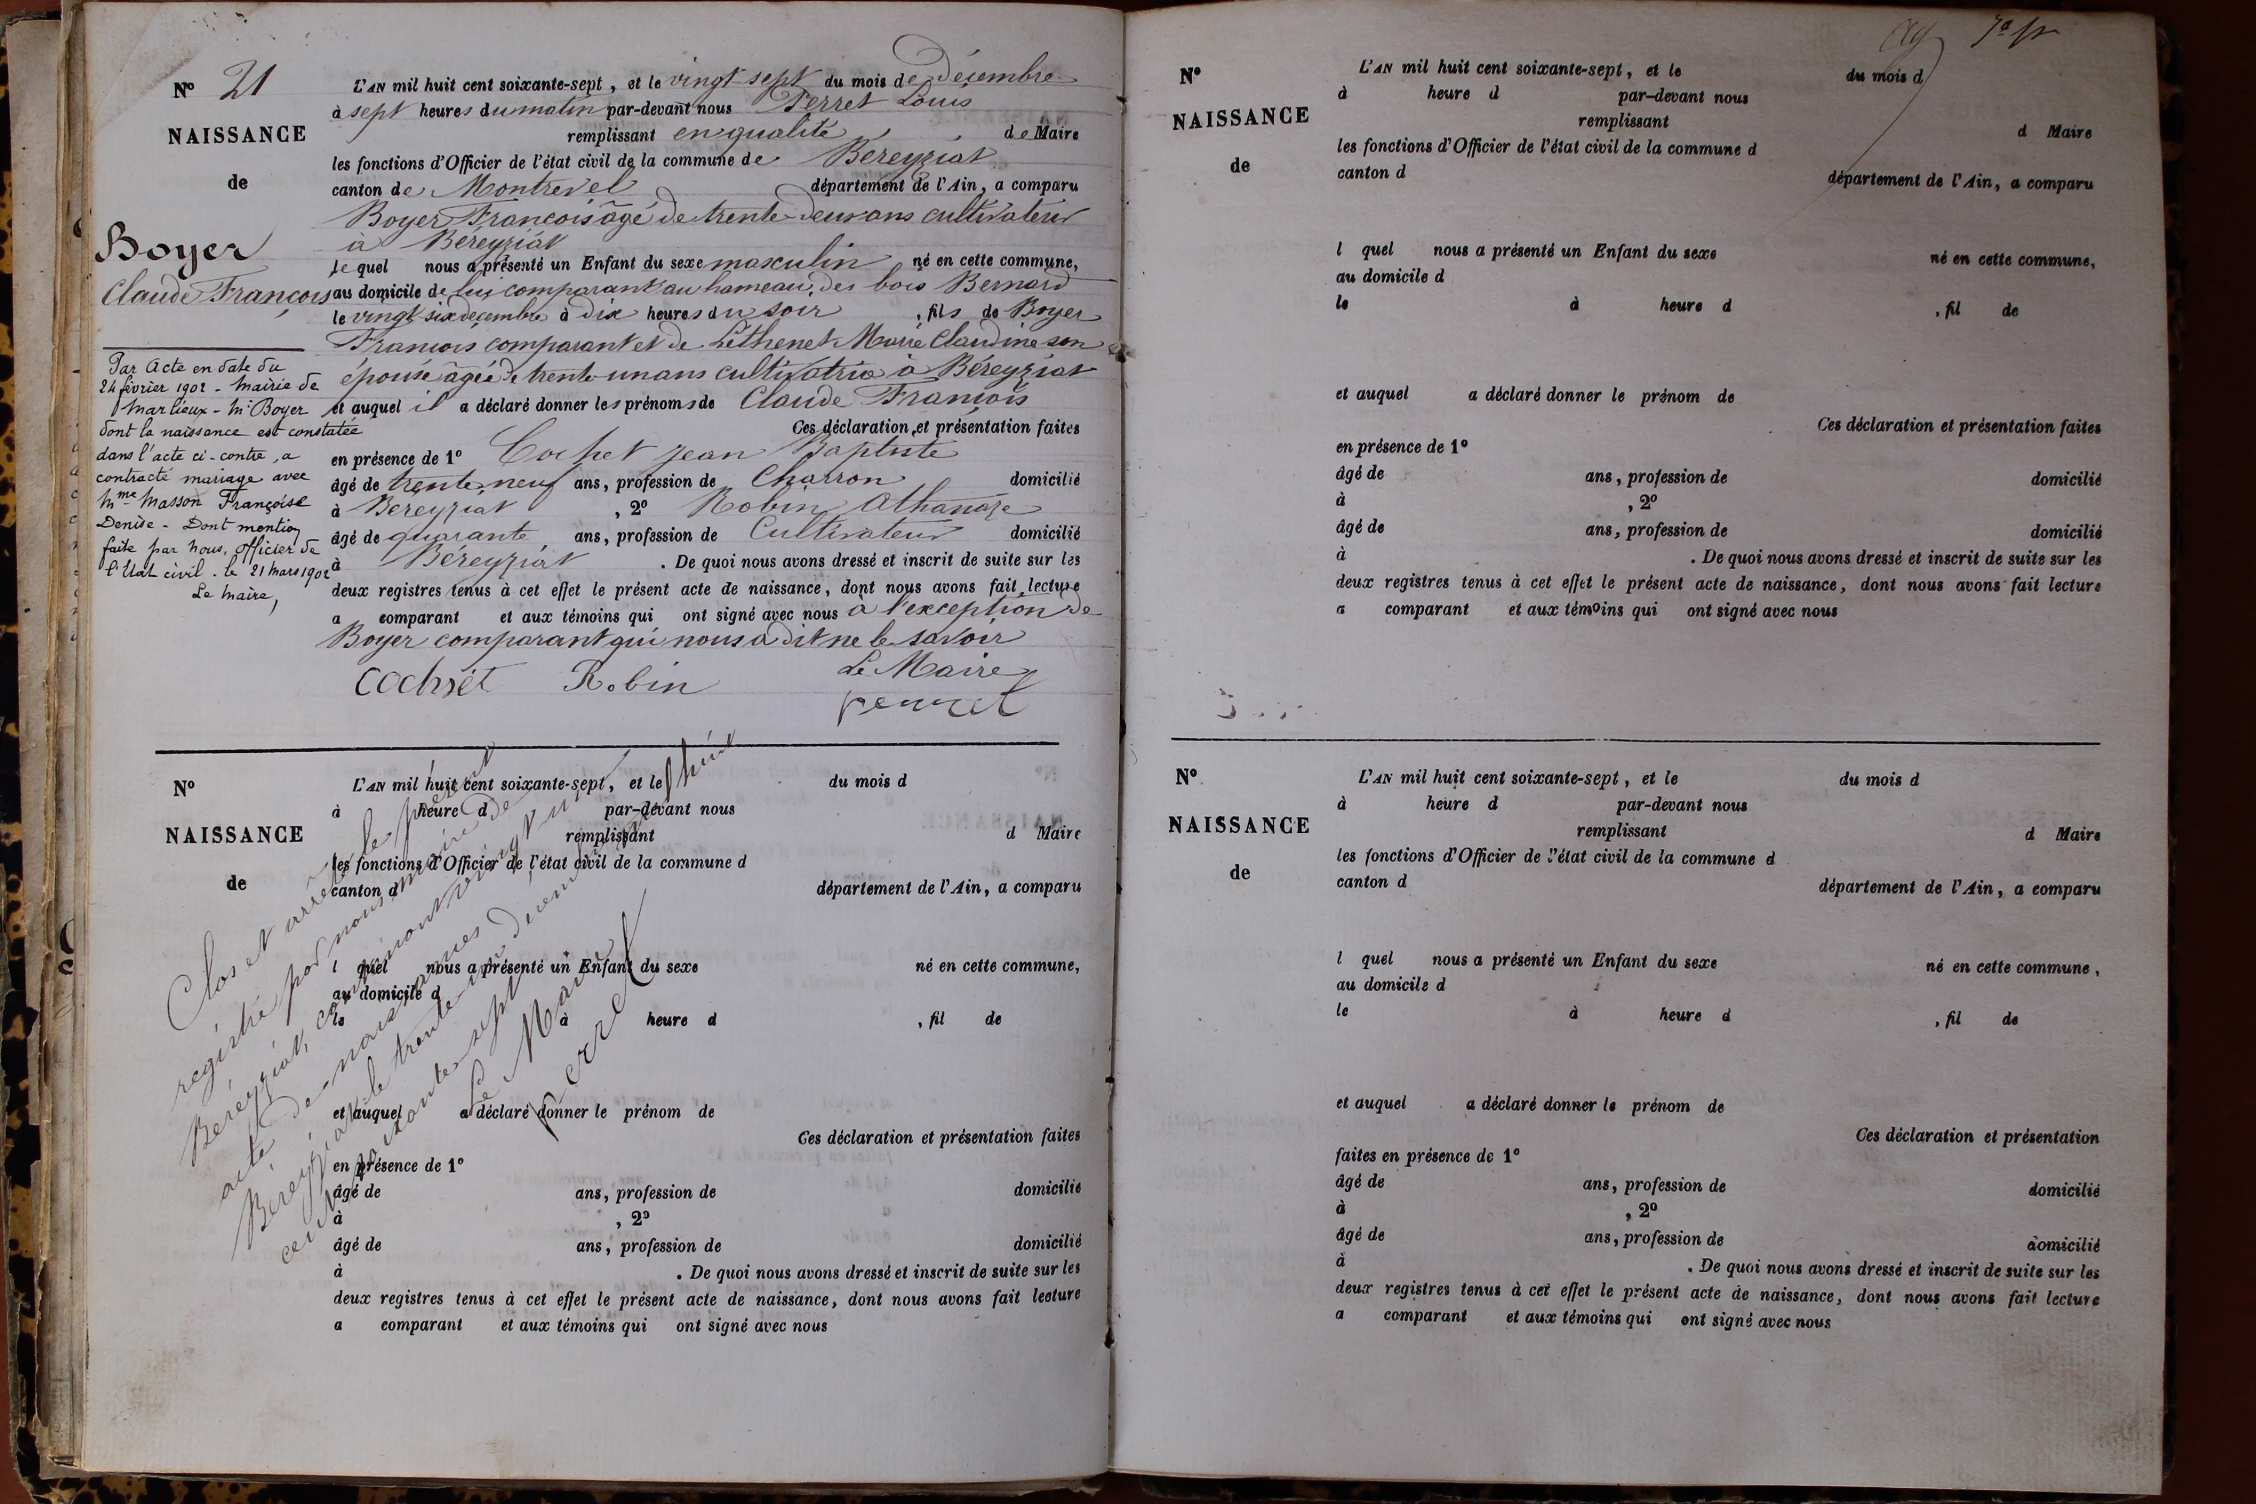 Nº 21
NAISSANCE
de
Boyer
Claude François
Par Acte en date du
24 février 1902 - Mairie de
Marlieux - Mr Boyer
dont la naissance est constatée
dans l'acte ci-contre, a
contracté mariage avec
Mme Masson Françoise
Denise - Dont mention
faite par nous, officier de
l'Etat civil. le 21 Mars 1902
Le Maire,
L'AN mil huit cent soixante-sept, et le vingt sept du mois de décembre
à sept heures du matin par-devant nous Perret Louis
remplissant en qualité de Maire
les fonctions d'Officier de l'état civil de la commune de Béreyziat
canton de Montrevel département de l'Ain, a comparu
Boyer François âgé de trente deux ans cultivateur
à Béreyziat
le quel nous a présenté un Enfant du sexe masculin né en cette commune,
au domicile de lui comparant au hameau des bois Bernard
le vingt six décembre à dix heures du soir, fils de Boyer
François comparant et de Léthenet Marie Claudine son
épouse âgée de trente un ans cultivatrice à Béreyziat
et auquel il a déclaré donner les prénoms de Claude François
Ces déclaration et présentation faites
en présence de 1º Cochet jean Baptiste
âgé de trente neuf ans, profession de Charron domicilié
à Béreyziat, 2º Robin Athanaze
âgé de quarante ans, profession de Cultivateur domicilié
à Béreyziat. De quoi nous avons dressé et inscrit de suite sur les
deux registres tenus à cet effet le présent acte de naissance, dont nous avons fait lecture
a comparant et aux témoins qui ont signé avec nous à l'exception de
Boyer comparant qui nous a dit ne le savoir
Cochet Robin Le Maire
perret
Nº
NAISSANCE
de
L'AN mil huit cent soixante-sept, et le du mois d
à heure d par-devant nous
remplissant d Maire
les fonctions d'Officier de l'état civil de la commune d
canton d département de l'Ain, a comparu
l quel nous a présenté un Enfant du sexe né en cette commune,
au domicile d
le à heure d , fil de
et auquel a déclaré donner le prénom de
Ces déclaration et présentation faites
en présence de 1º
âgé de ans, profession de domicilié
à , 2º
âgé de ans, profession de domicilié
à . De quoi nous avons dressé et inscrit de suite sur les
deux registres tenus à cet effet le présent acte de naissance, dont nous avons fait lecture
a comparant et aux témoins qui ont signé avec nous
Clos et arrêté le présent
registre par nous maire de
Béreyziat, contenant vingt un
acte de naissances
Béreyziat le trente un décembre mil huit
cent soixante sept
Le Maire
perret
Nº
NAISSANCE
de
L'AN mil huit cent soixante-sept, et le du mois d
à heure d par-devant nous
remplissant d Maire
les fonctions d'Officier de l'état civil de la commune d
canton d département de l'Ain, a comparu
l quel nous a présenté un Enfant du sexe né en cette commune,
au domicile d
le à heure d , fil de
et auquel a déclaré donner le prénom de
Ces déclaration et présentation faites
en présence de 1º
âgé de ans, profession de domicilié
à , 2º
âgé de ans, profession de domicilié
à . De quoi nous avons dressé et inscrit de suite sur les
deux registres tenus à cet effet le présent acte de naissance, dont nous avons fait lecture
a comparant et aux témoins qui ont signé avec nous
Nº
NAISSANCE
de
L'AN mil huit cent soixante-sept, et le du mois d
à heure d par-devant nous
remplissant d Maire
les fonctions d'Officier de l'état civil de la commune d
canton d département de l'Ain, a comparu
l quel nous a présenté un Enfant du sexe né en cette commune,
au domicile d
le à heure d , fil de
et auquel a déclaré donner le prénom de
Ces déclaration et présentation
faites en présence de 1º
âgé de ans, profession de domicilié
à , 2º
âgé de ans, profession de domicilié
à . De quoi nous avons dressé et inscrit de suite sur les
deux registres tenus à cet effet le présent acte de naissance, dont nous avons fait lecture
a comparant et aux témoins qui ont signé avec nous